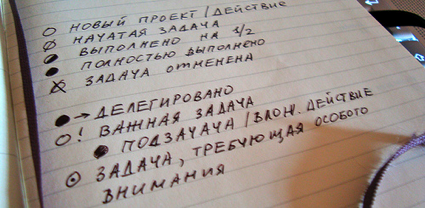 НОВЫЙ ПРОЕКТ/ДЕЙСТВИЕ
НАЧАТАЯ ЗАДАЧА
ВЫПОЛНЕНО НА 1/2
ПОЛНОСТЬЮ ВЫПОЛНЕНО
ЗАДАЧА ОТМЕНЕНА
→ ДЕЛЕГИРОВАНО
! ВАЖНАЯ ЗАДАЧА
ПОДЗАЧАЧА/ВЛОЖ. ДЕЙСТВИЕ
ЗАДАЧА, ТРЕБУЮЩАЯ ОСОБОГО
ВНИМАНИЯ